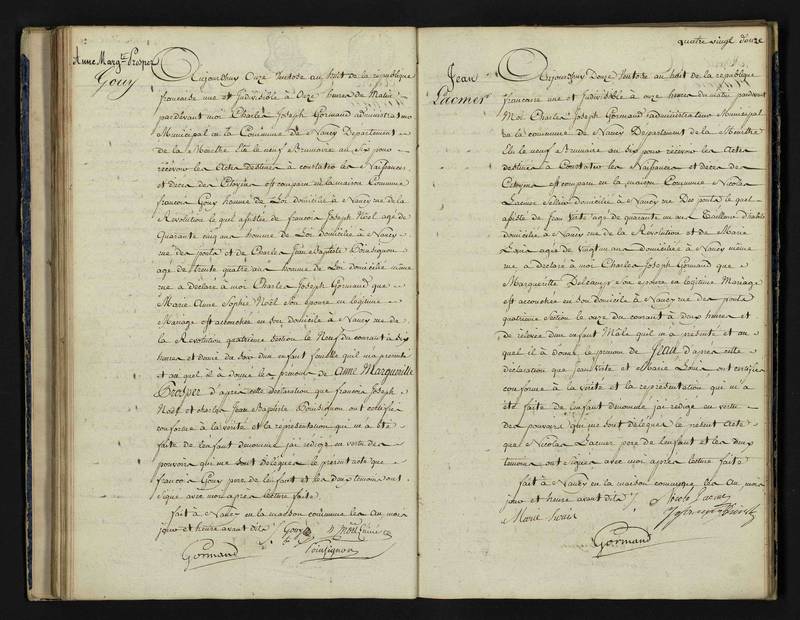 Anne Marg.te Prosper
Gouy
Aujourdhuy Onze Ventose an huit de la république
francaise une et Indivisible à Onze heures du Matin
pardevant moi Charles Joseph Gormand administrateur
Municipal en la Commune de Nancy Departement
de la Meurthe Elu le neuf Brumaire an Six pour
récévoir les Actes destinés à constater les Naissances
et décés des Citoyens est comparu en la maison Commune
francois Gouy homme de Loi domicilié à Nancy rue de la
Révolution le quel assisté de francois Joseph Noël agé de
Quarante cinq ans homme de Loi domicilié à Nancy
rue des ponts et de Charles Jean Baptiste Poinsignon
agé de trente quatre ans homme de Loi domicilié même
rue a Déclaré à moi Charles Joseph Gormand que
Marie Anne Sophie Noël Son épouse en légitime
Mariage est accouchée en son domicile à Nancy rue de
la Révolution quatrième Section le Neuf du courant à six
heures et demie du soir d'un enfant femelle quil m'a présenté
et au quel il a donné les prénoms de Anne Margueritte
Prosper d'après cette déclaration que francois Joseph
Noël et Charles Jean Baptiste Poinsignon ont certifié
conforme à la vérité et la représentation qui m'a été
faite de l'enfant dénommé j'ai rédigé en vertu des
pouvoirs qui me sont délégués le présent acte que
francois Gouy pere de l'enfant et les deux temoins ont
signé avec moi après lecture faite
fait à Nancy en la maison commune les An mois
jour et heure avant dits
Gouy
Poinsignon
Gormand
quatre vingt douze
Jean
Lacmer
Aujourdhuy Douze Ventose an huit de la république
francaise une et Indivisible à onze heures du matin pardevant
Moi Charles Joseph Gormand administrateur Municipal
en la commune de Nancy Departement de la Meurthe
Elu le neuf Brumaire an Six pour récévoir les Actes
destinés à Constater les Naissances et décés des
Citoyens est comparu en la maison Commune Nicolas
Lacmer Sellier domicilié à Nancy rue Des ponts le quel
assisté de Jean agé de quarante un ans Tailleur d'habits
domicilié à Nancy rue de la Révolution et de Marie
agée de vingt un ans Domiciliée à Nancy même
rue a déclaré à moi Charles Joseph Gormand que
Margueritte Delecamps son épouse en légitime Mariage
est accouchée en son domicile à Nancy rue des ponts
quatrième Section le onze du courant à deux heures et
de relevée d'un enfant Mâle quil m'a présenté et au
quel il a donné le prénom de Jean d'après cette
déclaration que Jean et Marie ont certifié
conforme à la vérité et la représentation qui m'a
été faite de l'enfant dénommé j'ai rédigé en vertu
des pouvoirs qui me sont délégués le présent Acte
que Nicolas Lacmer pere de l'enfant et les deux
temoins ont signé avec moi après lecture faite
fait à Nancy en la maison commune les An mois
jour et heure avant dits
Marie
Gormand